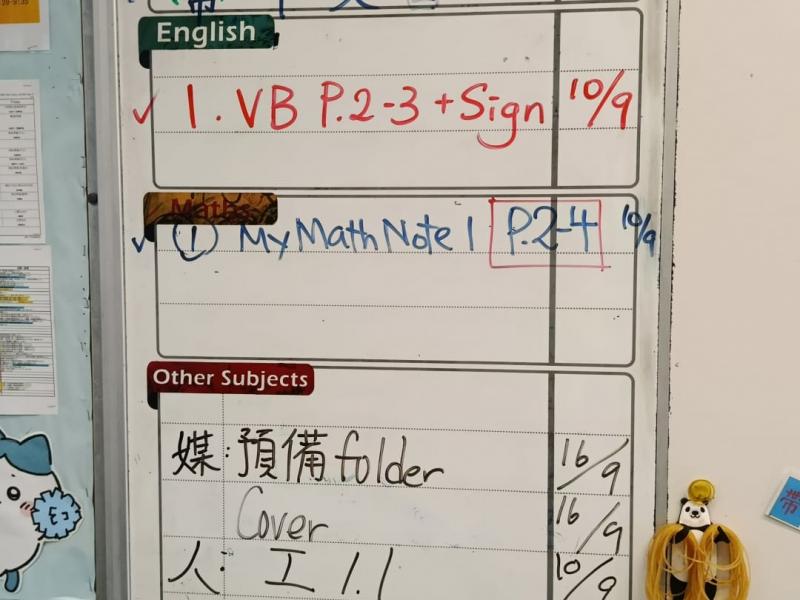 English
✓ 1. VB P.2-3 + Sign 10/9
Maths
✓ ① My Math Note 1 P.2-4 10/9
Other Subjects
媒: 預備 folder 16/9
Cover 16/9
人: 工 1.1 10/9